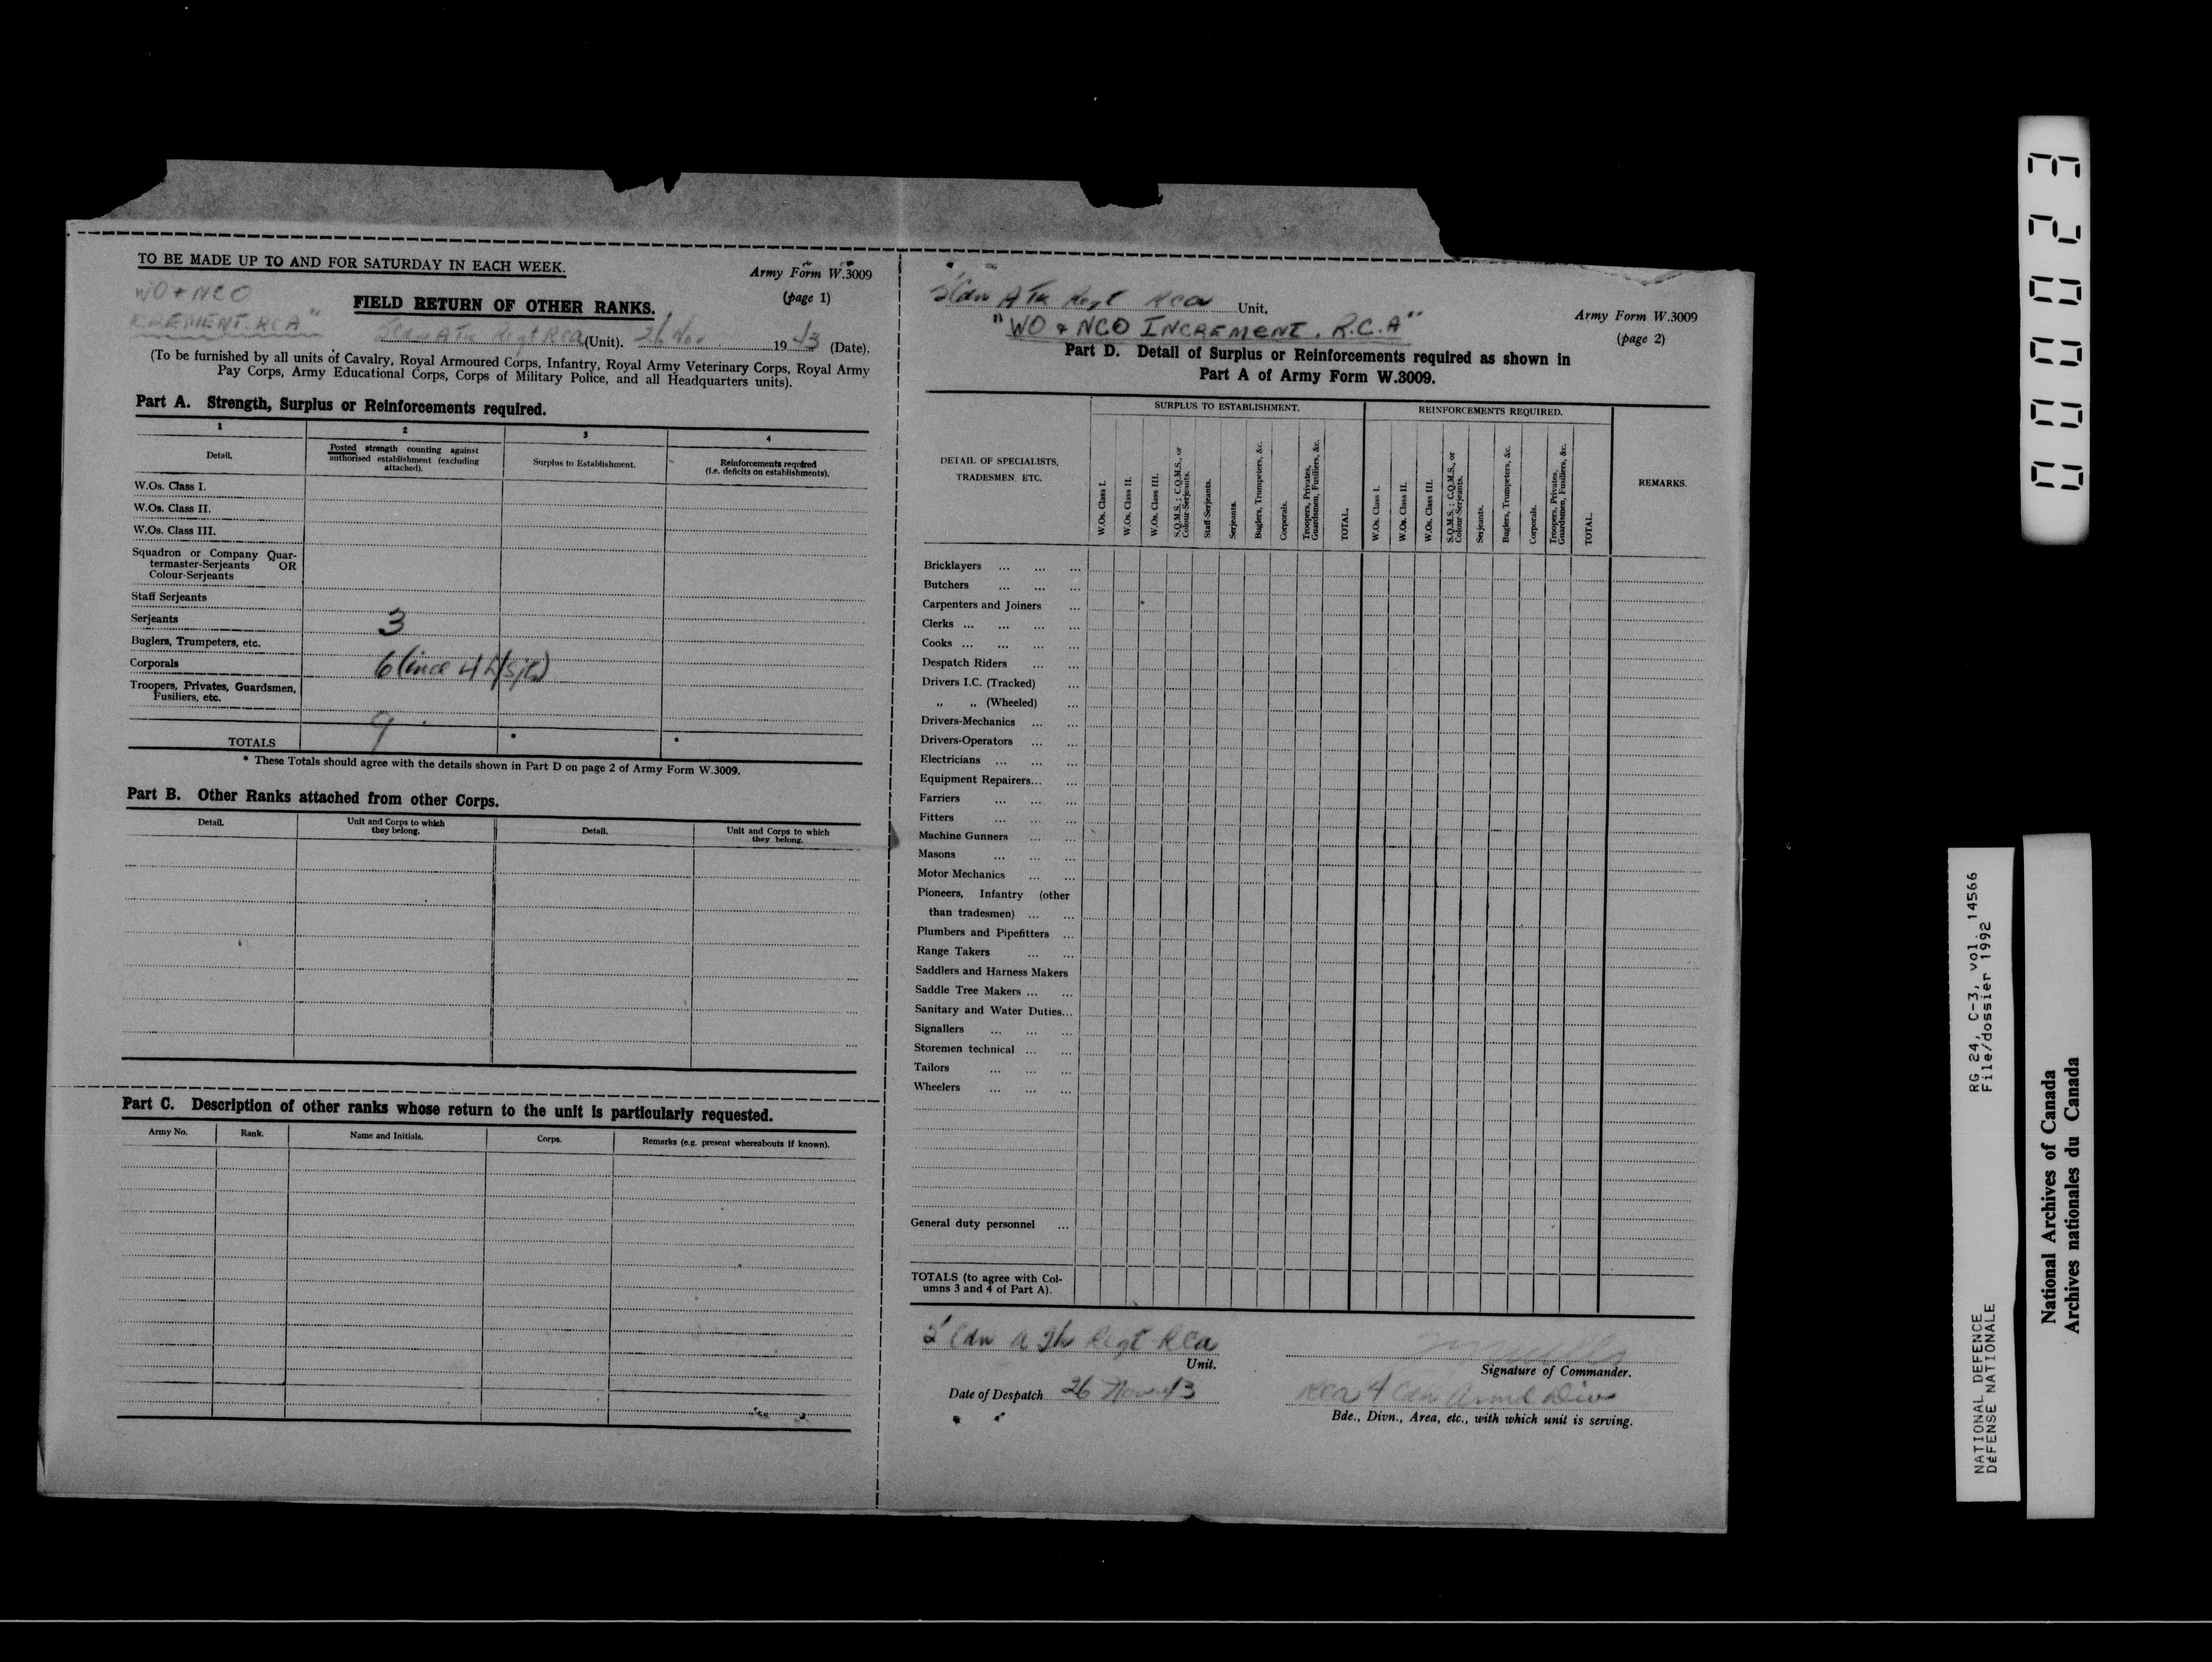 TO BE MADE UP TO AND FOR SATURDAY IN EACH WEEK.
Army Form W.3009
(page 1)
WO & NCO
FIELD RETURN OF OTHER RANKS.
CREMENT. RCA"
5 Cdn A Tk Regt RCA (Unit). 26 Nov 1943 (Date).
(To be furnished by all units of Cavalry, Royal Armoured Corps, Infantry, Royal Army Veterinary Corps, Royal Army
Pay Corps, Army Educational Corps, Corps of Military Police, and all Headquarters units).
Part A. Strength, Surplus or Reinforcements required.
1 2 3 4
Detail.
Posted strength counting against
authorised establishment (excluding
attached).
Surplus to Establishment.
Reinforcements required
(i.e. deficits on establishments).
W.Os. Class I.
W.Os. Class II.
W.Os. Class III.
Squadron or Company Quar-
termaster-Serjeants OR
Colour-Serjeants
Staff Serjeants
Serjeants 3
Buglers, Trumpeters, etc.
Corporals 6 (incl 4 L/Sjts)
Troopers, Privates, Guardsmen,
Fusiliers, etc.
TOTALS 9 * *
* These Totals should agree with the details shown in Part D on page 2 of Army Form W.3009.
Part B. Other Ranks attached from other Corps.
Detail.
Unit and Corps to which
they belong.
Detail.
Unit and Corps to which
they belong.
Part C. Description of other ranks whose return to the unit is particularly requested.
Army No. Rank. Name and Initials. Corps. Remarks (e.g. present whereabouts if known).
5 Cdn A Tk Regt RCA Unit.
Army Form W.3009
(page 2)
"WO & NCO INCREMENT. R.C.A"
Part D. Detail of Surplus or Reinforcements required as shown in
Part A of Army Form W.3009.
DETAIL OF SPECIALISTS,
TRADESMEN, ETC.
SURPLUS TO ESTABLISHMENT.
REINFORCEMENTS REQUIRED.
REMARKS.
W.Os. Class I.
W.Os. Class II.
W.Os. Class III.
S.Q.M.S.; C.Q.M.S., or
Colour-Serjeants.
Staff-Serjeants.
Serjeants.
Buglers, Trumpeters, &c.
Corporals.
Troopers, Privates,
Guardsmen, Fusiliers, &c.
TOTAL.
W.Os. Class I.
W.Os. Class II.
W.Os. Class III.
S.Q.M.S.; C.Q.M.S., or
Colour-Serjeants.
Serjeants.
Buglers, Trumpeters, &c.
Corporals.
Troopers, Privates,
Guardsmen, Fusiliers, &c.
TOTAL.
Bricklayers ... ... ...
Butchers ... ... ...
Carpenters and Joiners ...
Clerks ... ... ... ...
Cooks ... ... ... ...
Despatch Riders ... ...
Drivers I.C. (Tracked) ...
„ „ (Wheeled) ...
Drivers-Mechanics ... ...
Drivers-Operators ... ...
Electricians ... ... ...
Equipment Repairers... ...
Farriers ... ... ...
Fitters ... ... ...
Machine Gunners ... ...
Masons ... ... ...
Motor Mechanics ... ...
Pioneers, Infantry (other
than tradesmen) ... ...
Plumbers and Pipefitters ...
Range Takers ... ...
Saddlers and Harness Makers
Saddle Tree Makers ... ...
Sanitary and Water Duties...
Signallers ... ... ...
Storemen technical ... ...
Tailors ... ... ...
Wheelers ... ... ...
General duty personnel ...
TOTALS (to agree with Col-
umns 3 and 4 of Part A).
5 Cdn A Tk Regt RCA
Unit.
Signature of Commander.
Date of Despatch 26 Nov 43
RCA 4 Cdn Armd Div
Bde., Divn., Area, etc., with which unit is serving.
000023
RG 24, C-3, vol. 14566
File/dossier 1992
NATIONAL DEFENCE
DÉFENSE NATIONALE
National Archives of Canada
Archives nationales du Canada